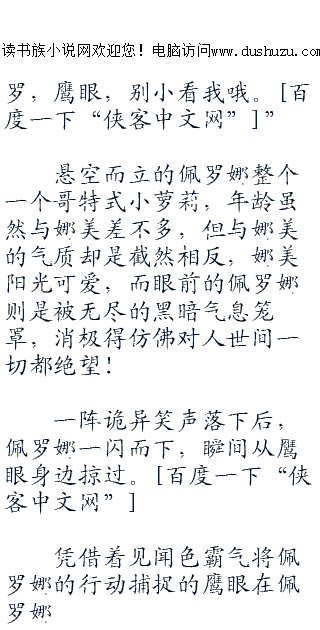 读书族小说网欢迎您！电脑访问www.dushuzu.com
罗，鹰眼，别小看我哦。[百
度一下“侠客中文网”]”
悬空而立的佩罗娜整个
一个哥特式小萝莉，年龄虽
然与娜美差不多，但与娜美
的气质却是截然相反，娜美
阳光可爱，而眼前的佩罗娜
则是被无尽的黑暗气息笼
罩，消极得仿佛对人世间一
切都绝望！
一阵诡异笑声落下后，
佩罗娜一闪而下，瞬间从鹰
眼身边掠过。[百度一下“侠
客中文网”]
凭借着见闻色霸气将佩
罗娜的行动捕捉的鹰眼在佩
罗娜